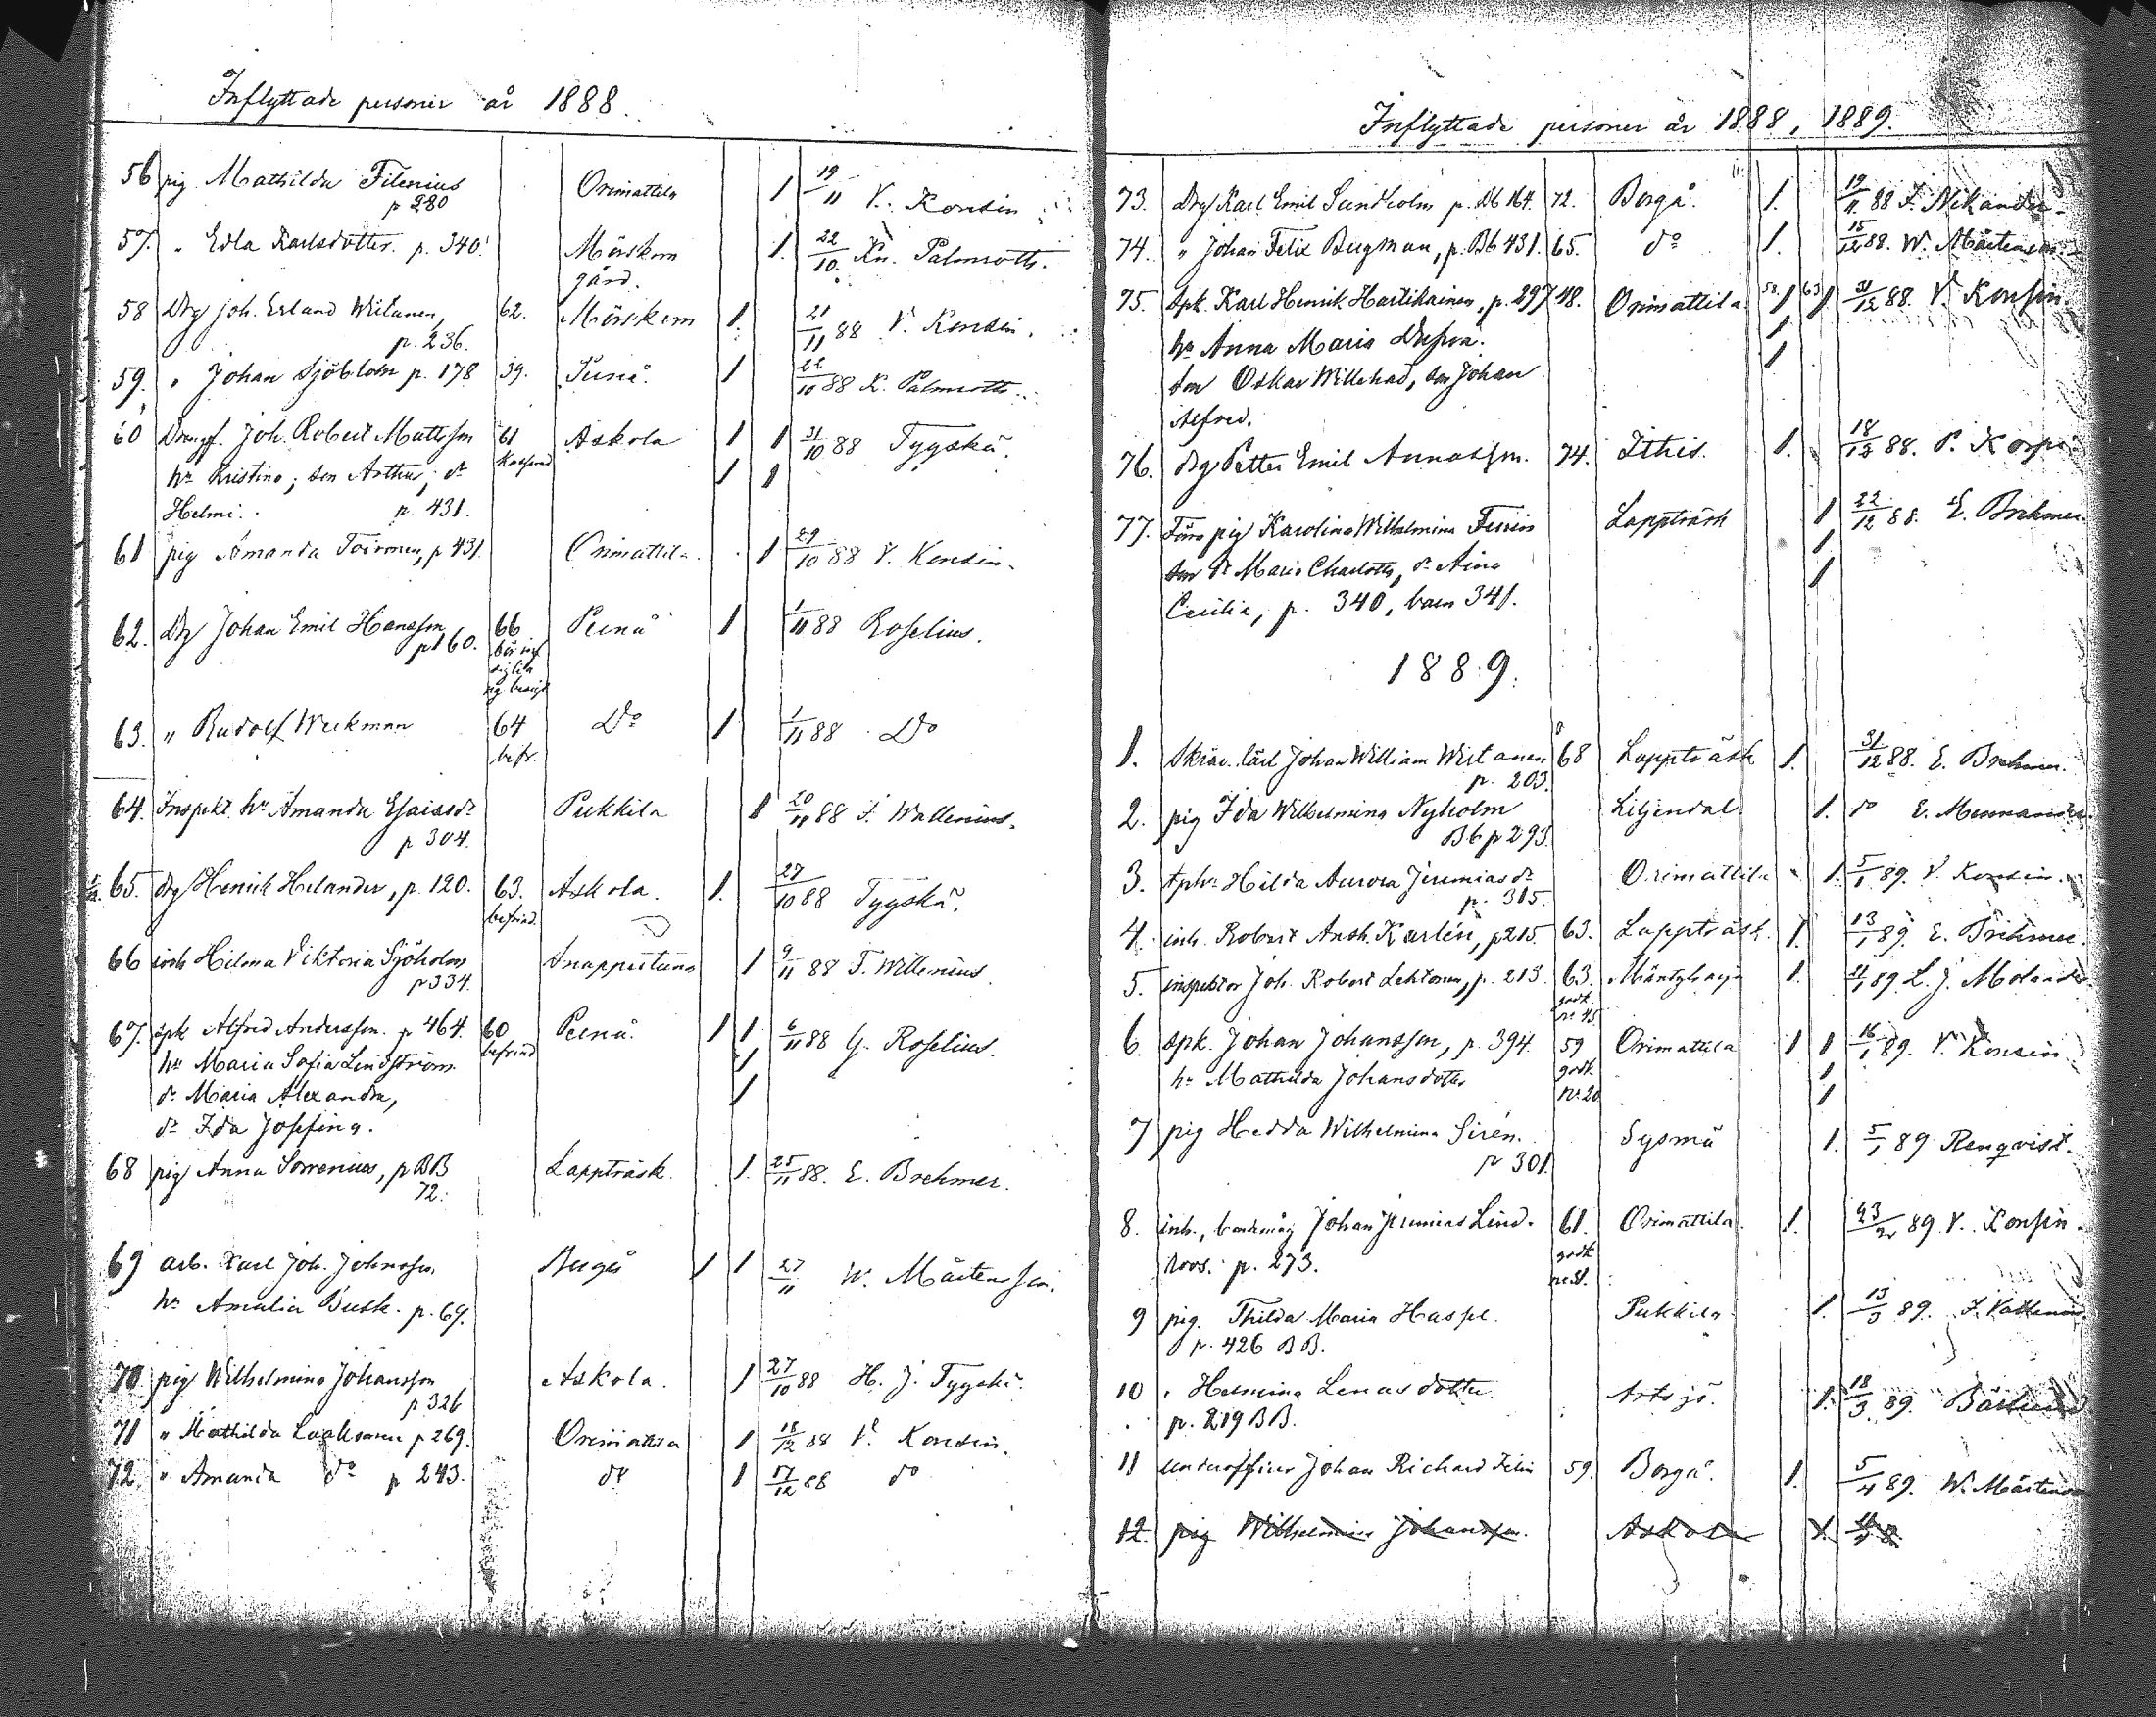 Inflyttade personer år 1888.
56 pig Mathilda Filenius Orimattila 1 19/11 V. Konsin
p 280
57. " Edla Karlsdotter. p. 340. Mörskom 1. 22/10. Kn. Palmroth.
gård.
58 Drg Joh. Erland Wiitanen, 62. Mörskom 1. 21/11 88 V. Konsin.
p. 236.
59. " Johan Sjöblom p. 178 39. 1 22/10 88 K. Palmroth.
60 Joh. Robert Mattsson 61 Askola 1 1 31/10 88 Tyyskä.
hu Kristina; son Arthur; dr 1 1
Helmi. p. 431.
61 pig Amanda Toivonen, p 431. Orimattila. 1 29/10 88 V. Konsin.
62. Drg Johan Emil Hansson 66 Pernå 1 1/11 88 Roselius.
p 160.
63. " Rudolf Weckman 64 Do 1 1/11 88 Do
befr.
64. Inspekt. hu Amanda Esaiasdr Pukkila 1 20/11 88 F. Wallenius.
p 304.
65. drg Henrik Helander, p. 120. 63. Askola. 1. 27/10 88 Tyyskä.
befriad.
66 inh Hilma Viktoria Sjöholm Anappertuna 1 9/11 88 F. Willenius.
p 334.
67. spk Alfred Andersson. p 464. 60 Pernå. 1 1 6/11 88 G. Roselius.
hu Maria Sofia Lindström. befriad 1
dr Maria Alexandra, 1
dr Ida Josefina.
68 pig Anna Sorrenius, p BB Lappträsk. 1. 25/11 88. E. Brehmer.
72.
69 arb. Karl Joh. Johnsson Borgå 1 1 27/11 W. Mårtensson.
hu Amalia Busk. p. 69.
70 pig Wilhelmina Johansson Askola. 1 27/10 88 H. J. Tyyskä.
p 326
71 " Mathilda Laaksonen p 269. Orimattila 1 18/12 88 V. Konsin.
72. " Amanda do p 243. do 1 17/12 88 do
Inflyttade personer år 1888, 1889.
73. Drg Karl Emil Sandholm p. Bb 164. 72. Borgå. 1. 19/11 88 F. Nikander.
74. " Johan Felix Bergman, p. Bb 431. 65. do 1. 15/12 88. W. Mårtensson.
75. spk. Karl Henrik Hartikainen, p. 297 48. Orimattila. 1 1 31/12 88. V. Konsin
hu Anna Maria 1
son Oskar Willehad, son Johan 1
Alfred.
76. drg Petter Emil Annasson. 74. Ithis. 1. 18/12 88. P.
77. pig Karolina Wilhelmina Lappträsk 1 22/12 88. E. Brehmer.
dr Maria Charlotta, dr Aina 1
Cecilia, p. 340, barn 341. 1
1889.
1. Skräd. lärl Johan William Wirtanen 68 Lappträsk 1. 31/12 88. E. Brehmer.
p. 203.
2. pig Ida Wilhelmina Nyholm Liljendal. 1. do E. Mennander.
Bb p 293.
3. Hilda Aurora Jeremiasdr Orimattila 1. 5/1 89. V. Konsin.
p. 315.
4. inh. Robert Ansh. Karlén, p 215. 63. Lappträsk. 1. 13/1 89. E. Brehmer.
5. inspektor Joh. Robert Lehtonen, p. 213. 63. Mäntyharju 1. 4/1 89. L. J. Molander
godk. nr 45
6. spk. Johan Johansson, p. 394. 59 Orimattila 1 1 16/1 89. V. Konsin.
hu Mathilda Johansdotter godk 1
nr 20 1
7 pig Hedda Wilhelmina Sirén. Sysmä 1. 5/1 89 Renqvist.
p 301.
8. inh., Johan Jeremias Lind- 61. Orimattila. 1. 23/2 89 V. Konsin.
roos. p. 273. godk
9 pig. Thilda Maria Hassel. Pukkila 1. 13/3 89. F. Vallenius.
p. 426 BB.
10 " Helmina Lenasdotter. Artsjö. 1. 18/3 89.
p. 219 BB.
11 underofficer Johan Richard 59. Borgå. 1. 5/4 89. W. Mårtenson
12. pig Wilhelmina Johansson. Askola 1.